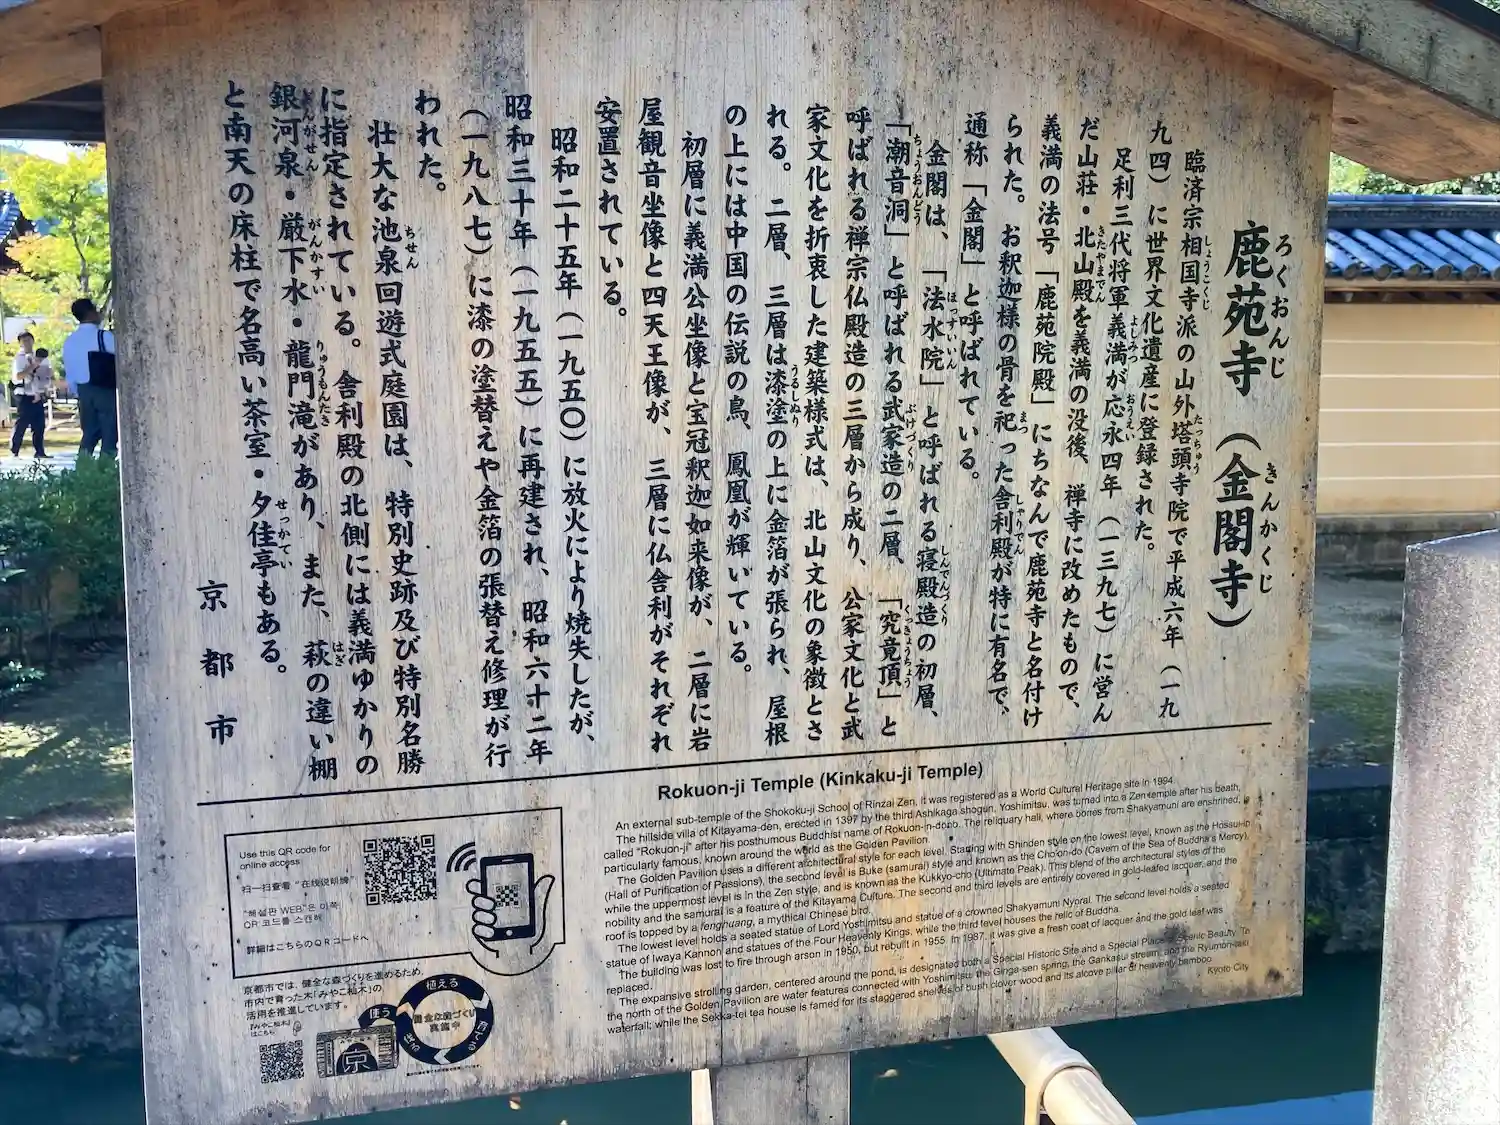 鹿苑寺（金閣寺）
ろくおんじ
きんかくじ
臨済宗相国寺派の山外塔頭寺院で平成六年（一九
しょうこくじ
たっちゅう
九四）に世界文化遺産に登録された。
足利三代将軍義満が応永四年（一三九七）に営ん
よしみつ
おうえい
だ山荘・北山殿を義満の没後、禅寺に改めたもので、
きたやまでん
義満の法号「鹿苑院殿」にちなんで鹿苑寺と名付け
られた。お釈迦様の骨を祀った舎利殿が特に有名で、
まつ
しゃりでん
通称「金閣」と呼ばれている。
金閣は、「法水院」と呼ばれる寝殿造の初層、
ほっすいいん
しんでんづくり
「潮音洞」と呼ばれる武家造の二層、「究竟頂」と
ちょうおんどう
ぶけづくり
くっきょうちょう
呼ばれる禅宗仏殿造の三層から成り、公家文化と武
家文化を折衷した建築様式は、北山文化の象徴とさ
れる。二層、三層は漆塗の上に金箔が張られ、屋根
うるしぬり
の上には中国の伝説の鳥、鳳凰が輝いている。
初層に義満公坐像と宝冠釈迦如来像が、二層に岩
屋観音坐像と四天王像が、三層に仏舎利がそれぞれ
安置されている。
昭和二十五年（一九五〇）に放火により焼失したが、
昭和三十年（一九五五）に再建され、昭和六十二年
（一九八七）に漆の塗替えや金箔の張替え修理が行
われた。
壮大な池泉回遊式庭園は、特別史跡及び特別名勝
ちせん
に指定されている。舎利殿の北側には義満ゆかりの
銀河泉・厳下水・龍門滝があり、また、萩の違い棚
ぎんがせん
がんかすい
りゅうもんたき
はぎ
と南天の床柱で名高い茶室・夕佳亭もある。
せっかてい
京都市
Rokuon-ji Temple (Kinkaku-ji Temple)
An external sub-temple of the Shokoku-ji School of Rinzai Zen, it was registered as a World Cultural Heritage site in 1994.
The hillside villa of Kitayama-den, erected in 1397 by the third Ashikaga shogun, Yoshimitsu, was turned into a Zen temple after his death,
called "Rokuon-ji" after his posthumous Buddhist name of Rokuon-in-dono. The reliquary hall, where bones from Shakyamuni are enshrined, is
particularly famous, known around the world as the Golden Pavilion.
The Golden Pavilion uses a different architectural style for each level. Starting with Shinden style on the lowest level, known as the Hossui-in
(Hall of Purification of Passions), the second level is Buke (samurai) style and known as the Cho'on-do (Cavern of the Sea of Buddha's Mercy),
while the uppermost level is in the Zen style, and is known as the Kukkyo-cho (Ultimate Peak). This blend of the architectural styles of the
nobility and the samurai is a feature of the Kitayama Culture. The second and third levels are entirely covered in gold-leafed lacquer, and the
roof is topped by a fenghuang, a mythical Chinese bird.
The lowest level holds a seated statue of Lord Yoshimitsu and statue of a crowned Shakyamuni Nyorai. The second level holds a seated
statue of Iwaya Kannon and statues of the Four Heavenly Kings, while the third level houses the relic of Buddha.
The building was lost to fire through arson in 1950, but rebuilt in 1955. In 1987, it was give a fresh coat of lacquer and the gold leaf was
replaced.
The expansive strolling garden, centered around the pond, is designated both a Special Historic Site and a Special Place of Scenic Beauty. To
the north of the Golden Pavilion are water features connected with Yoshimitsu: the Ginga-sen spring, the Gankasui stream, and the Ryumon-taki
waterfall; while the Sekka-tei tea house is famed for its staggered shelves of bush clover wood and its alcove pillar of heavenly bamboo.
Kyoto City
Use this QR code for
online access
扫一扫查看“在线说明牌”
"해설판 WEB"은 이쪽
QR 코드를 스캔해
詳細はこちらのQRコードへ
京都市では、健全な森づくりを進めるため、
市内で育った木「みやこ杣木」の
活用を推進しています。
「みやこ杣木」
はこちら
植える
育てる
使う
健全な森づくり
実施中
京